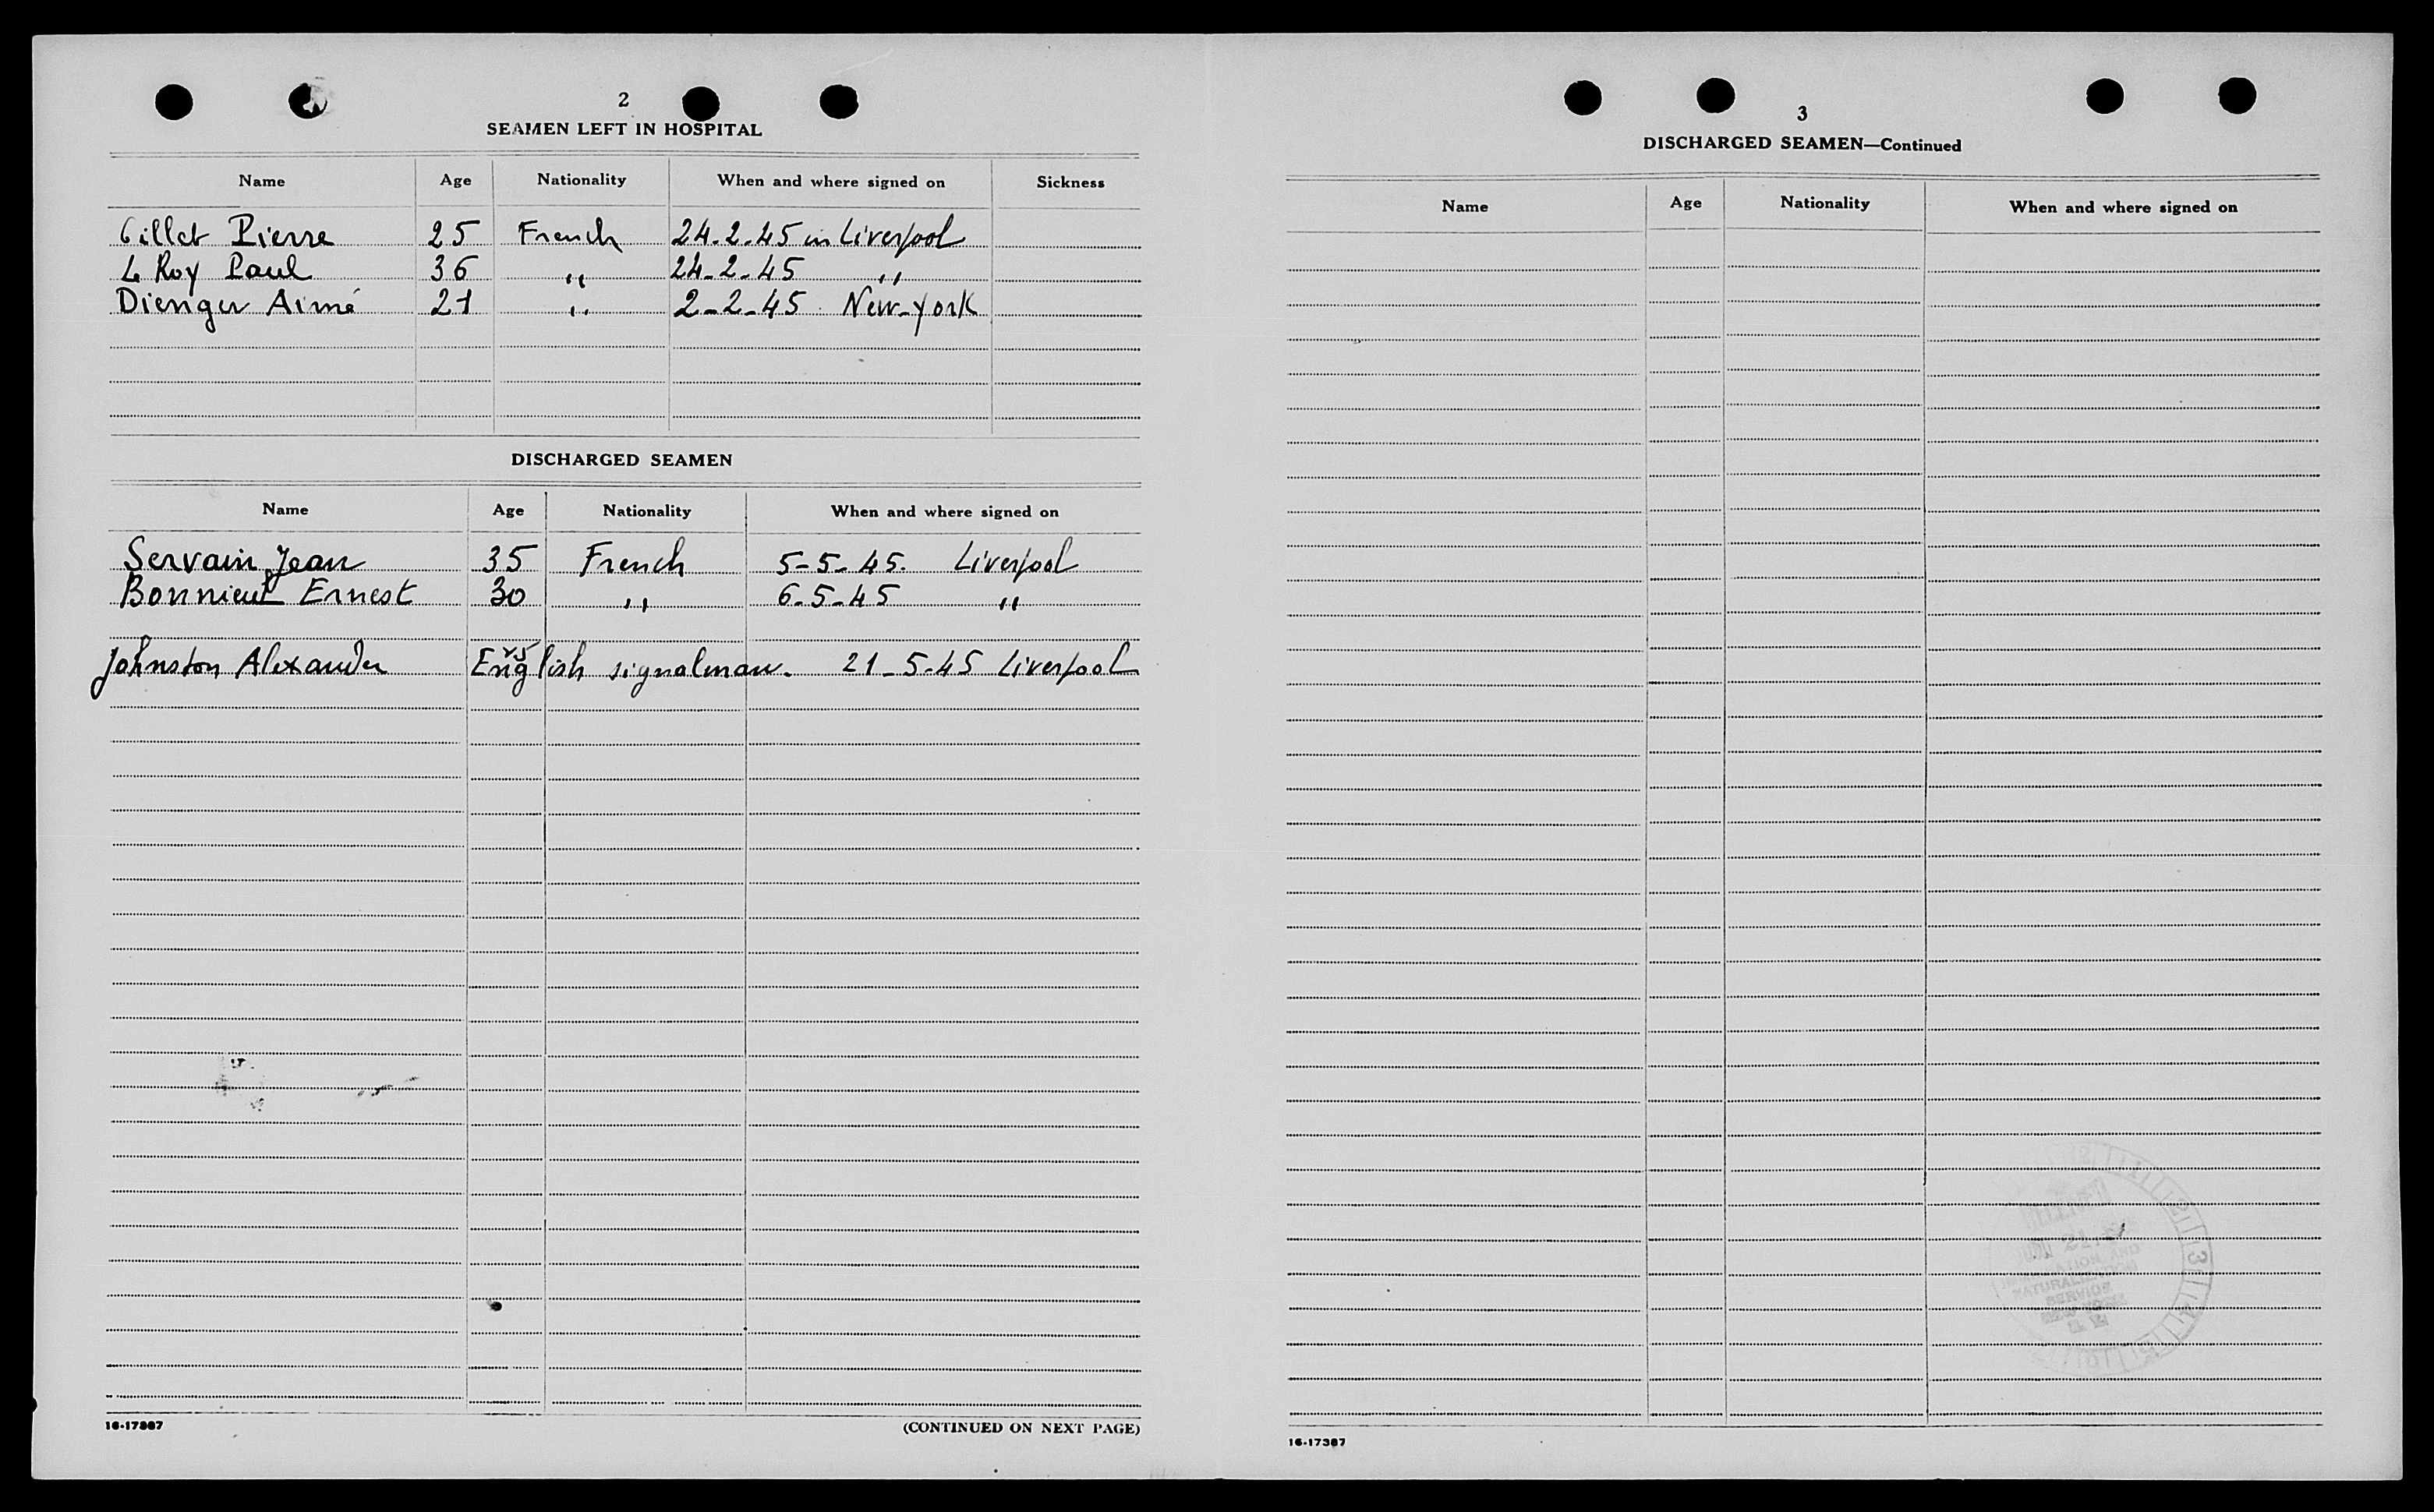 2
SEAMEN LEFT IN HOSPITAL
Name Age Nationality When and where signed on Sickness
Gillet Pierre 25 French 24.2.45 in Liverpool
Le Roy Paul 36 " 24-2-45 "
Dienger Aimé 21 " 2-2-45 New-York
DISCHARGED SEAMEN
Name Age Nationality When and where signed on
Servain Jean 35 French 5-5-45. Liverpool
Ernest 30 " 6-5-45 "
Johnston Alexander English signalman. 21-5-45 Liverpool
16-17367
(CONTINUED ON NEXT PAGE)
3
DISCHARGED SEAMEN—Continued
Name Age Nationality When and where signed on
NATURALIZATION
SERVICE
16-17367